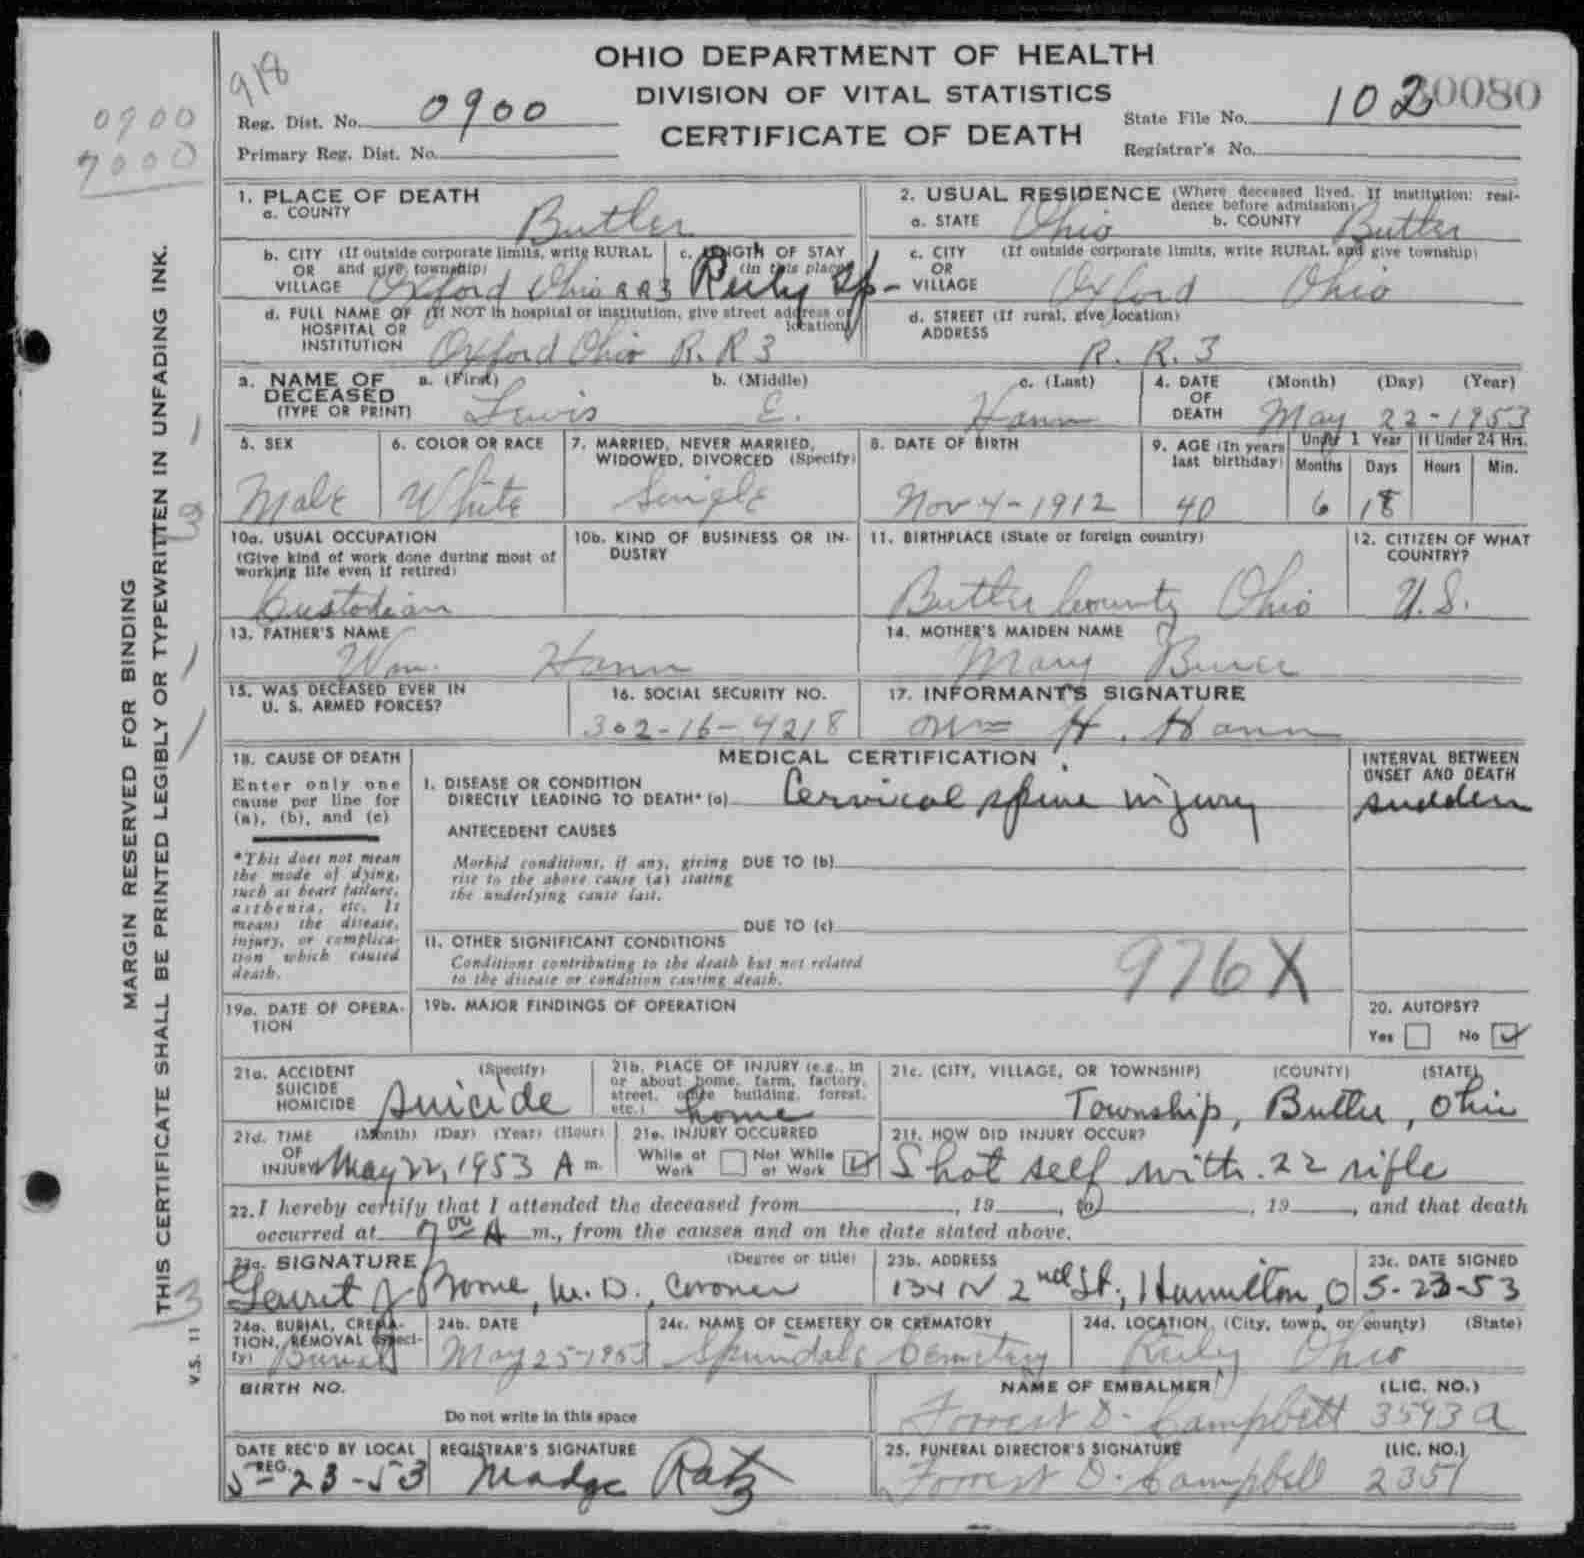 OHIO DEPARTMENT OF HEALTH
DIVISION OF VITAL STATISTICS
CERTIFICATE OF DEATH
918
0900
7000
Reg. Dist. No. 0900
Primary Reg. Dist. No.
State File No. 102 30080
Registrar's No.
MARGIN RESERVED FOR BINDING
THIS CERTIFICATE SHALL BE PRINTED LEGIBLY OR TYPEWRITTEN IN UNFADING INK.
V.S. 11
1. PLACE OF DEATH
a. COUNTY Butler
2. USUAL RESIDENCE (Where deceased lived. If institution: residence before admission)
a. STATE Ohio b. COUNTY Butler
b. CITY (If outside corporate limits, write RURAL
OR and give township)
VILLAGE Oxford Ohio RR3
c. LENGTH OF STAY
(in this place)
Reily Tp-
c. CITY (If outside corporate limits, write RURAL and give township)
OR
VILLAGE Oxford Ohio
d. FULL NAME OF (If NOT in hospital or institution, give street address or location)
HOSPITAL OR
INSTITUTION Oxford Ohio R. R 3
d. STREET (If rural, give location)
ADDRESS R. R. 3
3. NAME OF DECEASED (TYPE OR PRINT)
a. (First) b. (Middle) c. (Last)
Lewis E. Hann
4. DATE OF DEATH (Month) (Day) (Year)
May 22-1953
5. SEX
Male
6. COLOR OR RACE
White
7. MARRIED, NEVER MARRIED, WIDOWED, DIVORCED (Specify)
Single
8. DATE OF BIRTH
Nov 4-1912
9. AGE (In years last birthday)
40
Under 1 Year
Months Days
6 18
If Under 24 Hrs.
Hours Min.
10a. USUAL OCCUPATION
(Give kind of work done during most of working life even if retired)
Custodian
10b. KIND OF BUSINESS OR INDUSTRY
11. BIRTHPLACE (State or foreign country)
Butler County Ohio
12. CITIZEN OF WHAT COUNTRY?
U.S.
13. FATHER'S NAME
Wm. Hann
14. MOTHER'S MAIDEN NAME
Mary
15. WAS DECEASED EVER IN U. S. ARMED FORCES?
16. SOCIAL SECURITY NO.
302-16-4218
17. INFORMANT'S SIGNATURE
H. Hann
18. CAUSE OF DEATH
Enter only one cause per line for (a), (b), and (c)
*This does not mean the mode of dying, such as heart failure, asthenia, etc. It means the disease, injury, or complication which caused death.
MEDICAL CERTIFICATION
I. DISEASE OR CONDITION
DIRECTLY LEADING TO DEATH* (a) Cervical spine injury
INTERVAL BETWEEN ONSET AND DEATH
sudden
ANTECEDENT CAUSES
Morbid conditions, if any, giving rise to the above cause (a) stating the underlying cause last.
DUE TO (b)
DUE TO (c)
II. OTHER SIGNIFICANT CONDITIONS
Conditions contributing to the death but not related to the disease or condition causing death.
976X
19a. DATE OF OPERATION
19b. MAJOR FINDINGS OF OPERATION
20. AUTOPSY?
Yes No
21a. ACCIDENT SUICIDE HOMICIDE (Specify)
Suicide
21b. PLACE OF INJURY (e.g., in or about home, farm, factory, street, office building, forest, etc.)
home
21c. (CITY, VILLAGE, OR TOWNSHIP) (COUNTY) (STATE)
Township, Butler, Ohio
21d. TIME OF INJURY (Month) (Day) (Year) (Hour)
May 22, 1953 A m.
21e. INJURY OCCURRED
While at Work Not While at Work
21f. HOW DID INJURY OCCUR?
Shot self with .22 rifle
22. I hereby certify that I attended the deceased from , 19 , to , 19 , and that death
occurred at 7 00 A m., from the causes and on the date stated above.
23a. SIGNATURE (Degree or title)
Garret J Boone, M.D., Coroner
23b. ADDRESS
134 N 2nd St., Hamilton, O
23c. DATE SIGNED
5-23-53
24a. BURIAL, CREMATION, REMOVAL (Specify)
Burial
24b. DATE
May 25-1953
24c. NAME OF CEMETERY OR CREMATORY
Cemetery
24d. LOCATION (City, town, or county) (State)
Reily Ohio
BIRTH NO.
Do not write in this space
NAME OF EMBALMER (LIC. NO.)
Forrest D. Campbell 3593A
DATE REC'D BY LOCAL REG.
5-23-53
REGISTRAR'S SIGNATURE
Madge Ratz
25. FUNERAL DIRECTOR'S SIGNATURE (LIC. NO.)
Forrest D. Campbell 2351